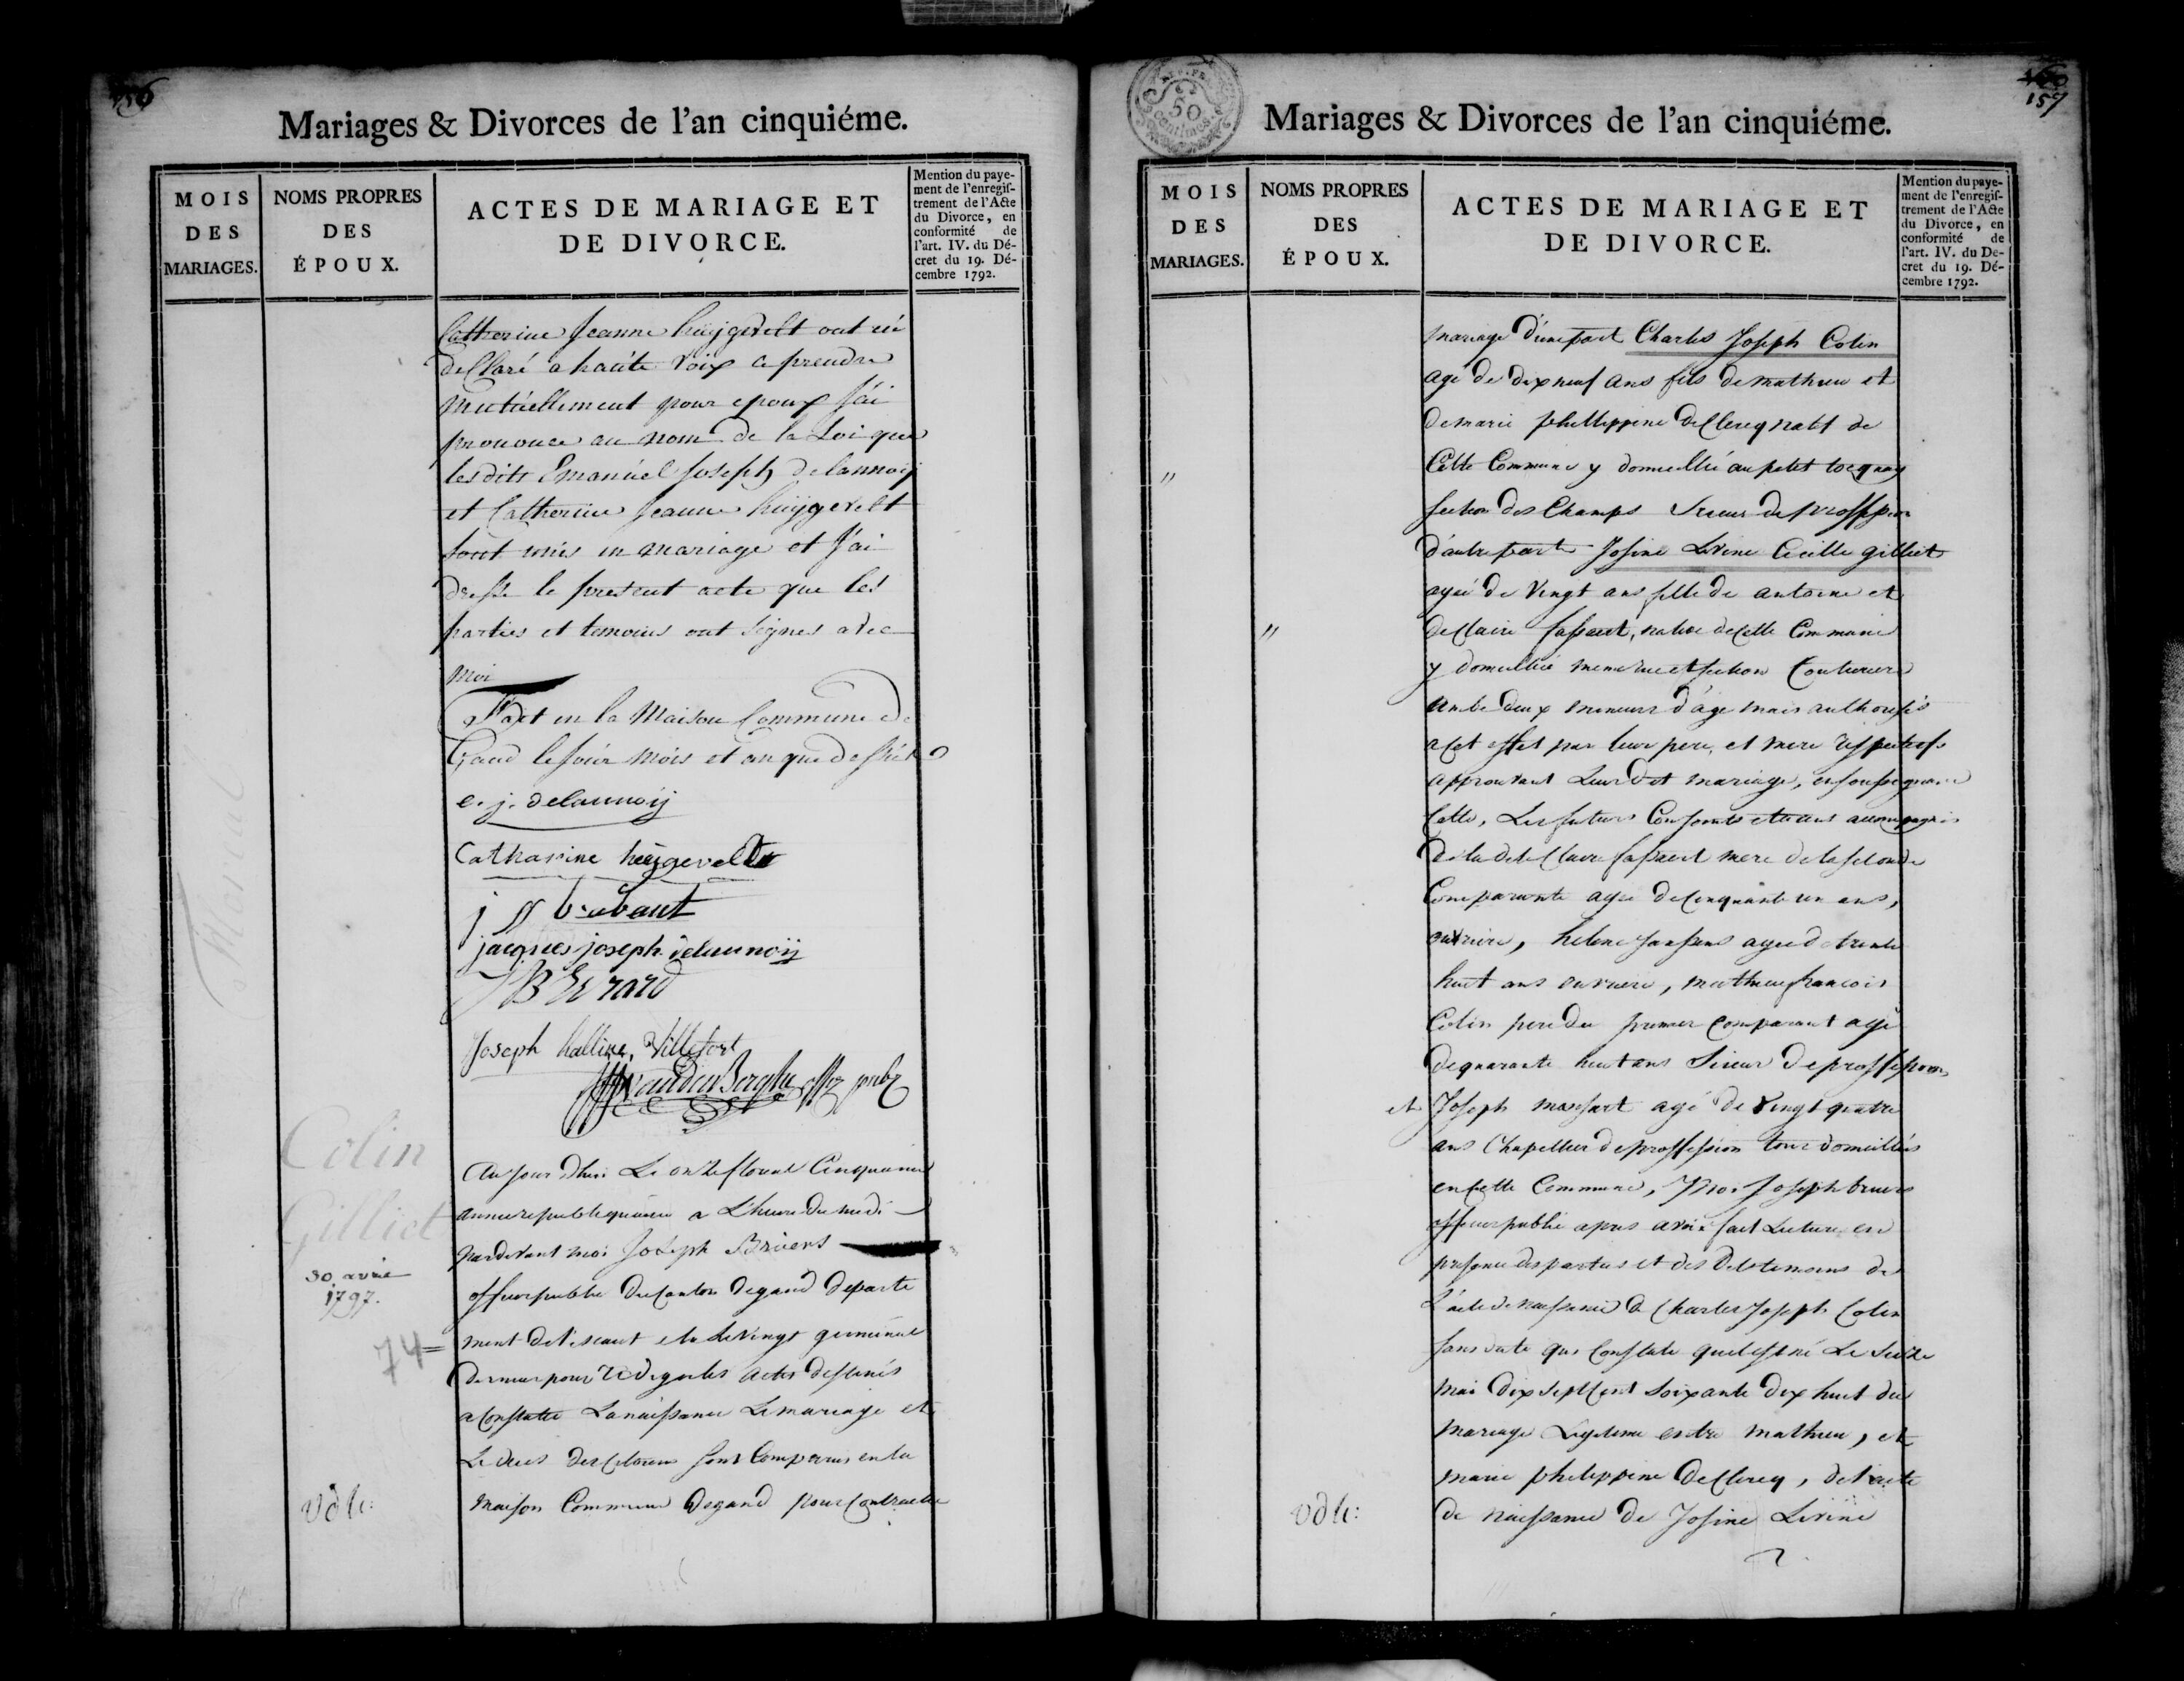 156
Mariages & Divorces de l'an cinquiéme.
MOIS DES MARIAGES.
NOMS PROPRES DES ÉPOUX.
ACTES DE MARIAGE ET DE DIVORCE.
Mention du paye-
ment de l'enregis-
trement de l'Acte
du Divorce, en
conformité de
l'art. IV. du Dé-
cret du 19. Dé-
cembre 1792.
Catherine Jeanne huÿgevelt ont
declaré a haute voix ce prendre
Mutuellement pour epoux J'ai
prononce au nom de la Loi que
les dits Emanuel Joseph delannoÿ
et Catherine Jeanne huÿgevelt
sont unis en mariage et J'ai
dresse le present acte que les
parties et temoins ont signes avec
Moi
Fait en la Maison Commune de
Gand le jour mois et an que dessus
e. j. delannoÿ
Catharine huÿgevelt
brabant
jacques joseph delannoÿ
JB Evrard
Joseph halline, Villefort
vanden Berghe offr publ
Colin
Gilliet
30. avril
1797.
74=
Aujourd'hui Le onze floreal Cinquieme
année republiquaine a L'heure de midi
pardevant moi Joseph Bruers
officier public du Canton degand departe
ment del'escaut elu Le Vingt germinal
dernier pour rediger les actes destinés
a Constater La naissance Le mariage et
Le deces des Citoiens sont Comparus en la
vdh:
maison Commune degand pour Contracter
157
Mariages & Divorces de l'an cinquiéme.
MOIS DES MARIAGES.
NOMS PROPRES DES ÉPOUX.
ACTES DE MARIAGE ET DE DIVORCE.
Mention du paye-
ment de l'enregis-
trement de l'Acte
du Divorce, en
conformité de
l'art. IV. du De-
cret du 19. Dé-
cembre 1792.
mariage d'une part Charles Joseph Colin
agé de dix neuf ans fils de mathieu et
de marie philleppine deClercq natif de
Cette Commune y domicillié au petit
section des Champs de proffession
d'autre part Josine Livine Cecille gilliet
agée de Vingt ans fille de antoine et
de Claire native de Cette Commune
y domicillié meme rue et section Couturiere
ambe deux mineurs d'age mais authorisés
a cet effet par leur pere et mere respectifs
approuvant Leur dit mariage,
Les futurs Conjoints accompagnés
de la dite Claire mere de la seconde
Comparante agée de Cinquante un ans,
ouvriere, helene Janssens agée de trente
huit ans ouvriere, mathieu francois
Colin pere du premier Comparant agé
de quarante huit ans de proffession
et Joseph agé de Vingt quatre
ans Chapellier de proffession tous domicilliés
en Cette Commune, Moi Joseph bruers
officier public apres avoir fait Lecture en
presence des parties et des dits temoins de
L'acte de naissance de Charles Joseph Colin
sans date qui Constate qu'il est né Le seize
mai dix sept Cent soixante dix huit du
mariage Legitime entre mathieu, et
marie philippine deClercq, de l'acte
vdh:
de naissance de Josine Livine